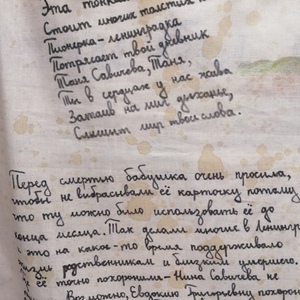 Эта тонкая
Стоит многих толстых
Пионерка-ленинградка
Потрясает твой дневник
Таня Савичева, Таня,
Ты в сердцах у нас жива
Затаив на миг дыханье,
Слышит мир твои слова.
Перед смертью бабушка очень просила,
чтобы не выбрасывали её карточку, потому
что ту можно было использовать её до
конца месяца. Так делали многие в Ленинг
и это на какое-то время поддерживало
жизнь родственникам и близким умершего.
её точно похоронили – Нина Савичева не
Возможно, Евдокию Григорьевну похорон